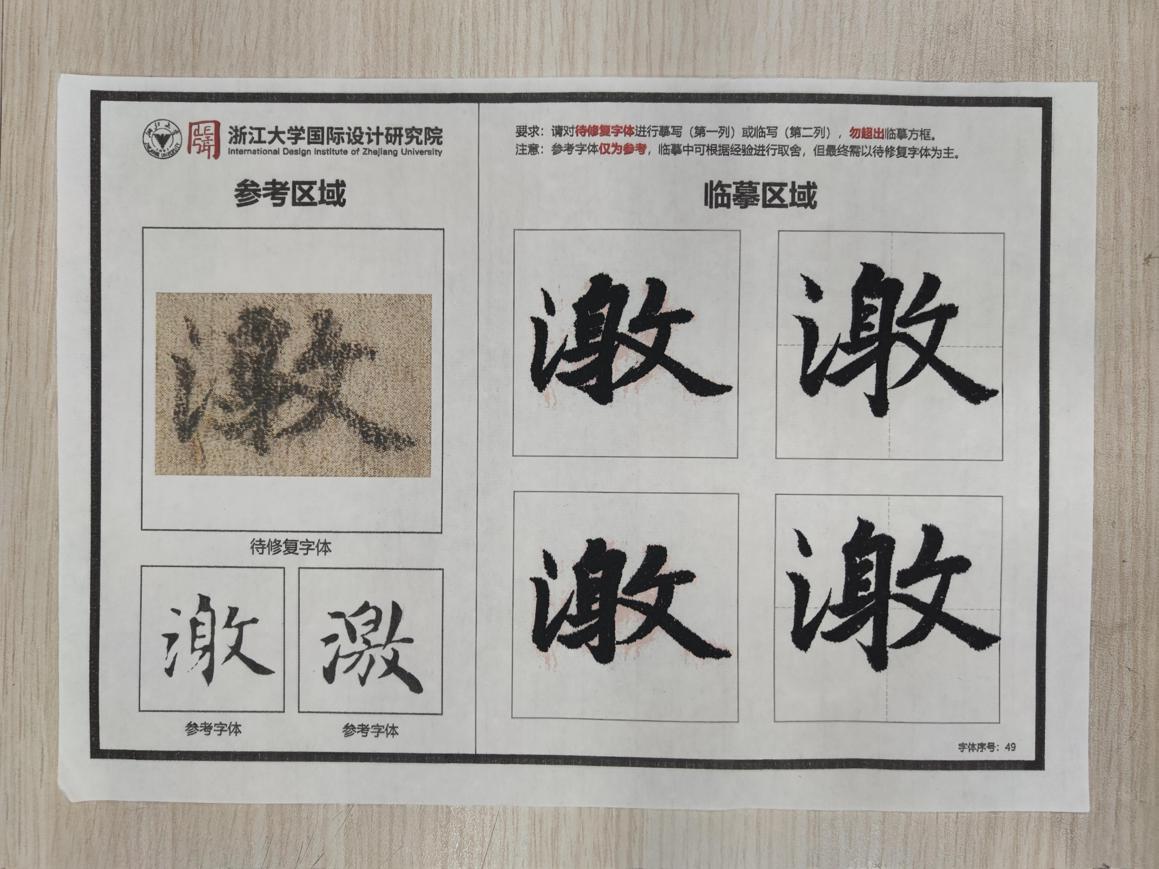 浙江大学国际设计研究院
International Design Institute of Zhejiang University
参考区域
待修复字体
参考字体
参考字体
要求：请对待修复字体进行摹写（第一列）或临写（第二列），勿超出临摹方框。
注意：参考字体仅为参考，临摹中可根据经验进行取舍，但最终需以待修复字体为主。
临摹区域
字体序号：49